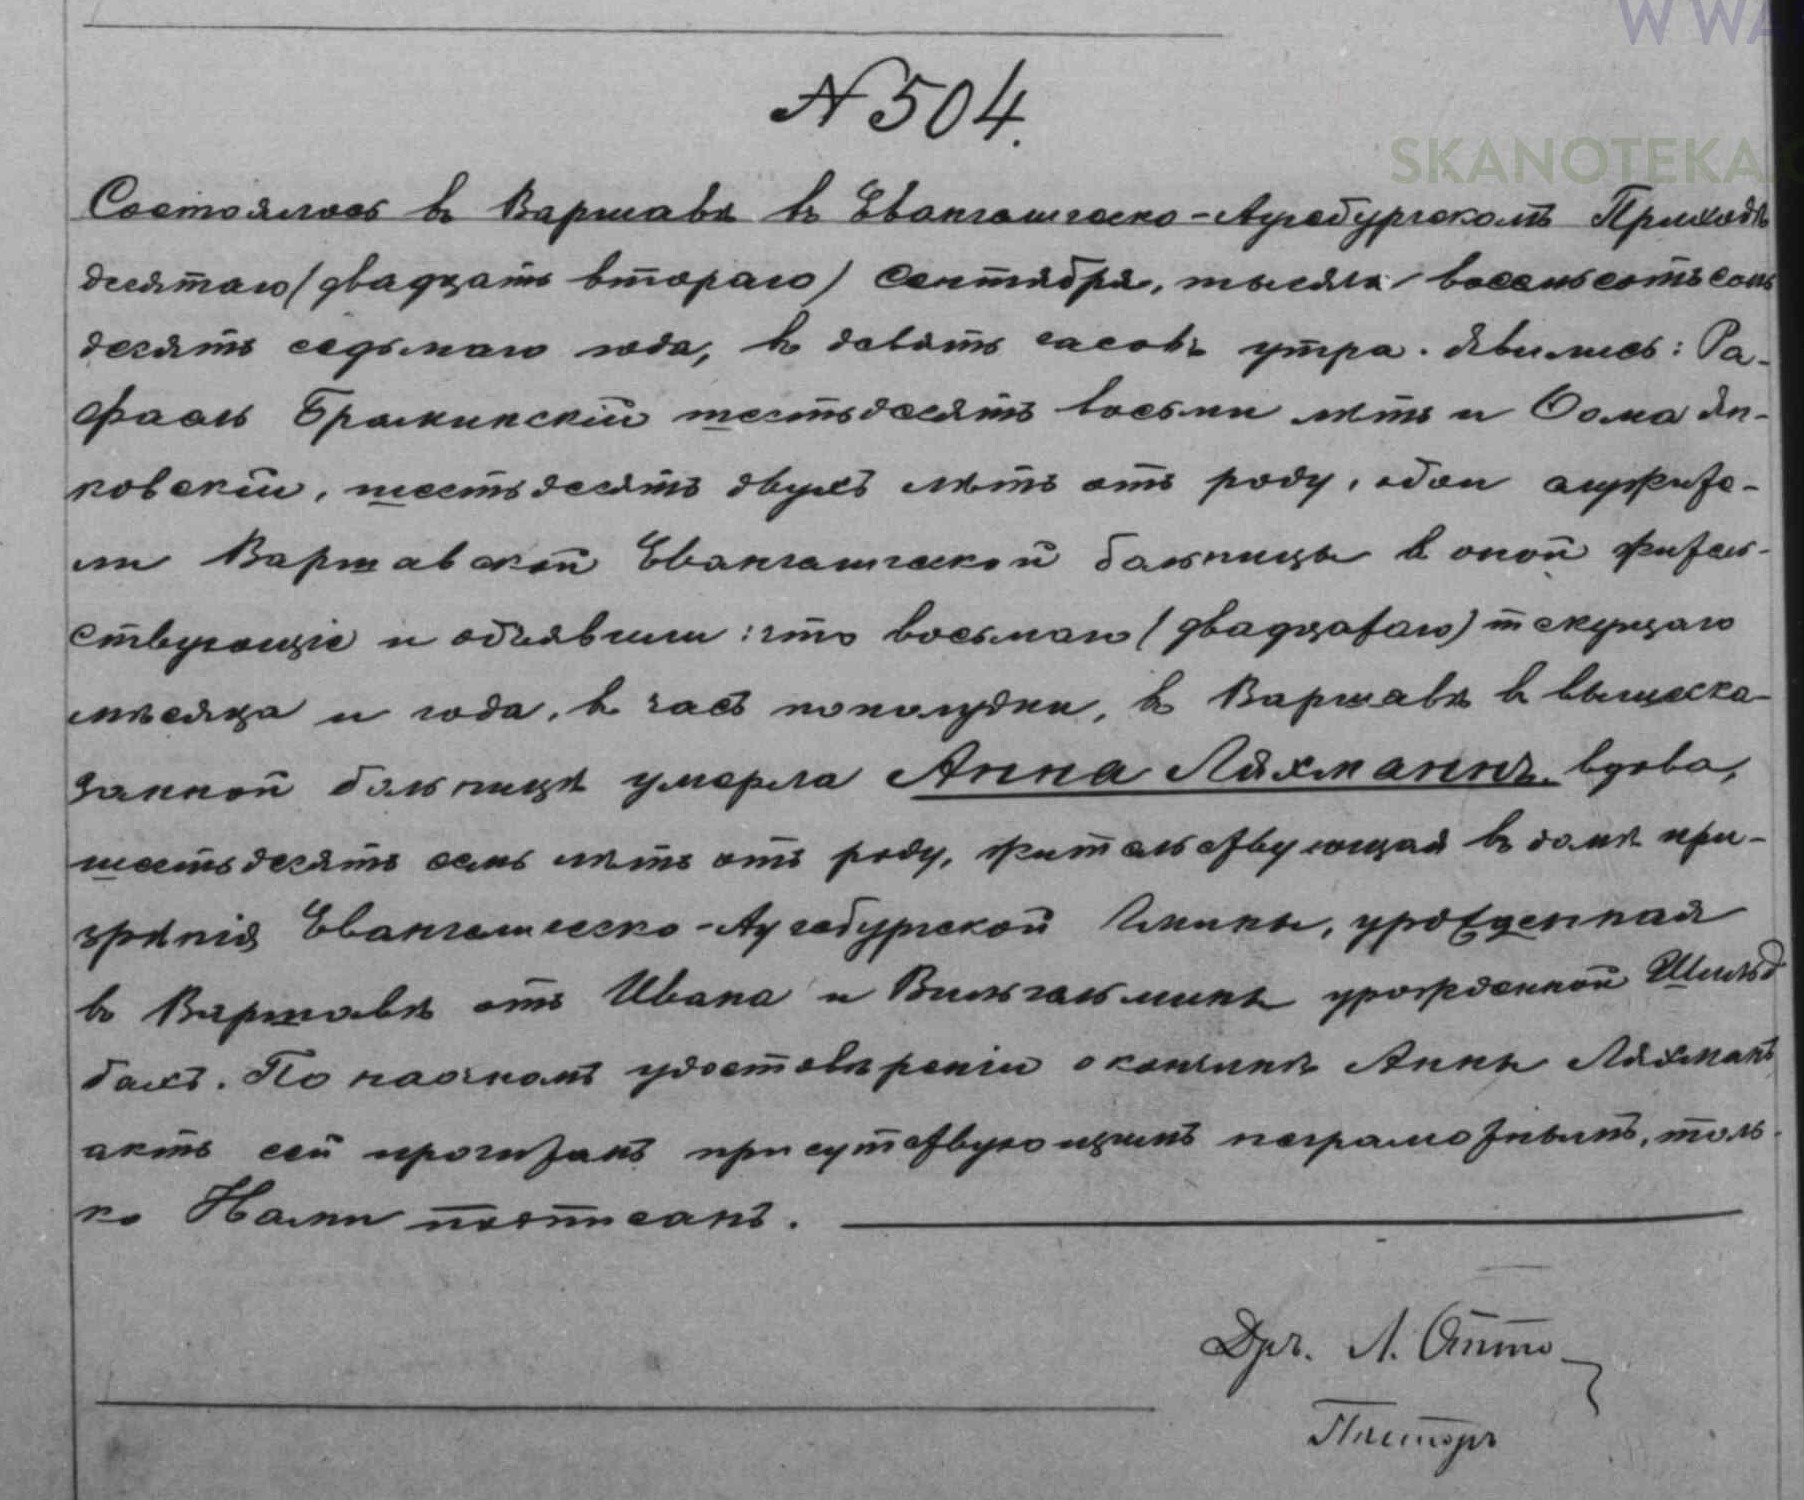 W WA
SKANOTEKA
N 504.
Состоялось въ Варшавѣ въ Евангелическо-Аугсбургскомъ Приходѣ
десятаго (двадцать втораго) Сентября, тысяча восемьсотъ семь
десятъ седьмаго года, въ девять часовъ утра. Явились: Ра-
фаэль Брамкинскій шестьдесятъ восьми лѣтъ и Ѳома Ян-
ковскій, шестьдесятъ двухъ лѣтъ отъ роду, обои служите-
ли Варшавской Евангелической больницы въ оной житель-
ствующіе и объявили: что восьмаго (двадцатаго) текущаго
мѣсяца и года, въ часъ пополудни, въ Варшавѣ въ вышеска-
занной больницѣ умерла Анна Ляхманнъ, вдова,
шестьдесятъ семь лѣтъ отъ роду, жительствующая въ домѣ при-
зрѣнія Евангелическо-Аугсбургской Гмины, урожденная
въ Варшавѣ отъ Ивана и Вильгельмины урожденной Шильд
бахъ. По наочномъ удостовѣреніи о кончинѣ Анны Ляхманъ
актъ сей прочитанъ присутствующимъ неграмотнымъ, толь-
ко Нами подписанъ.
Дръ. Л. Отто
Пасторъ